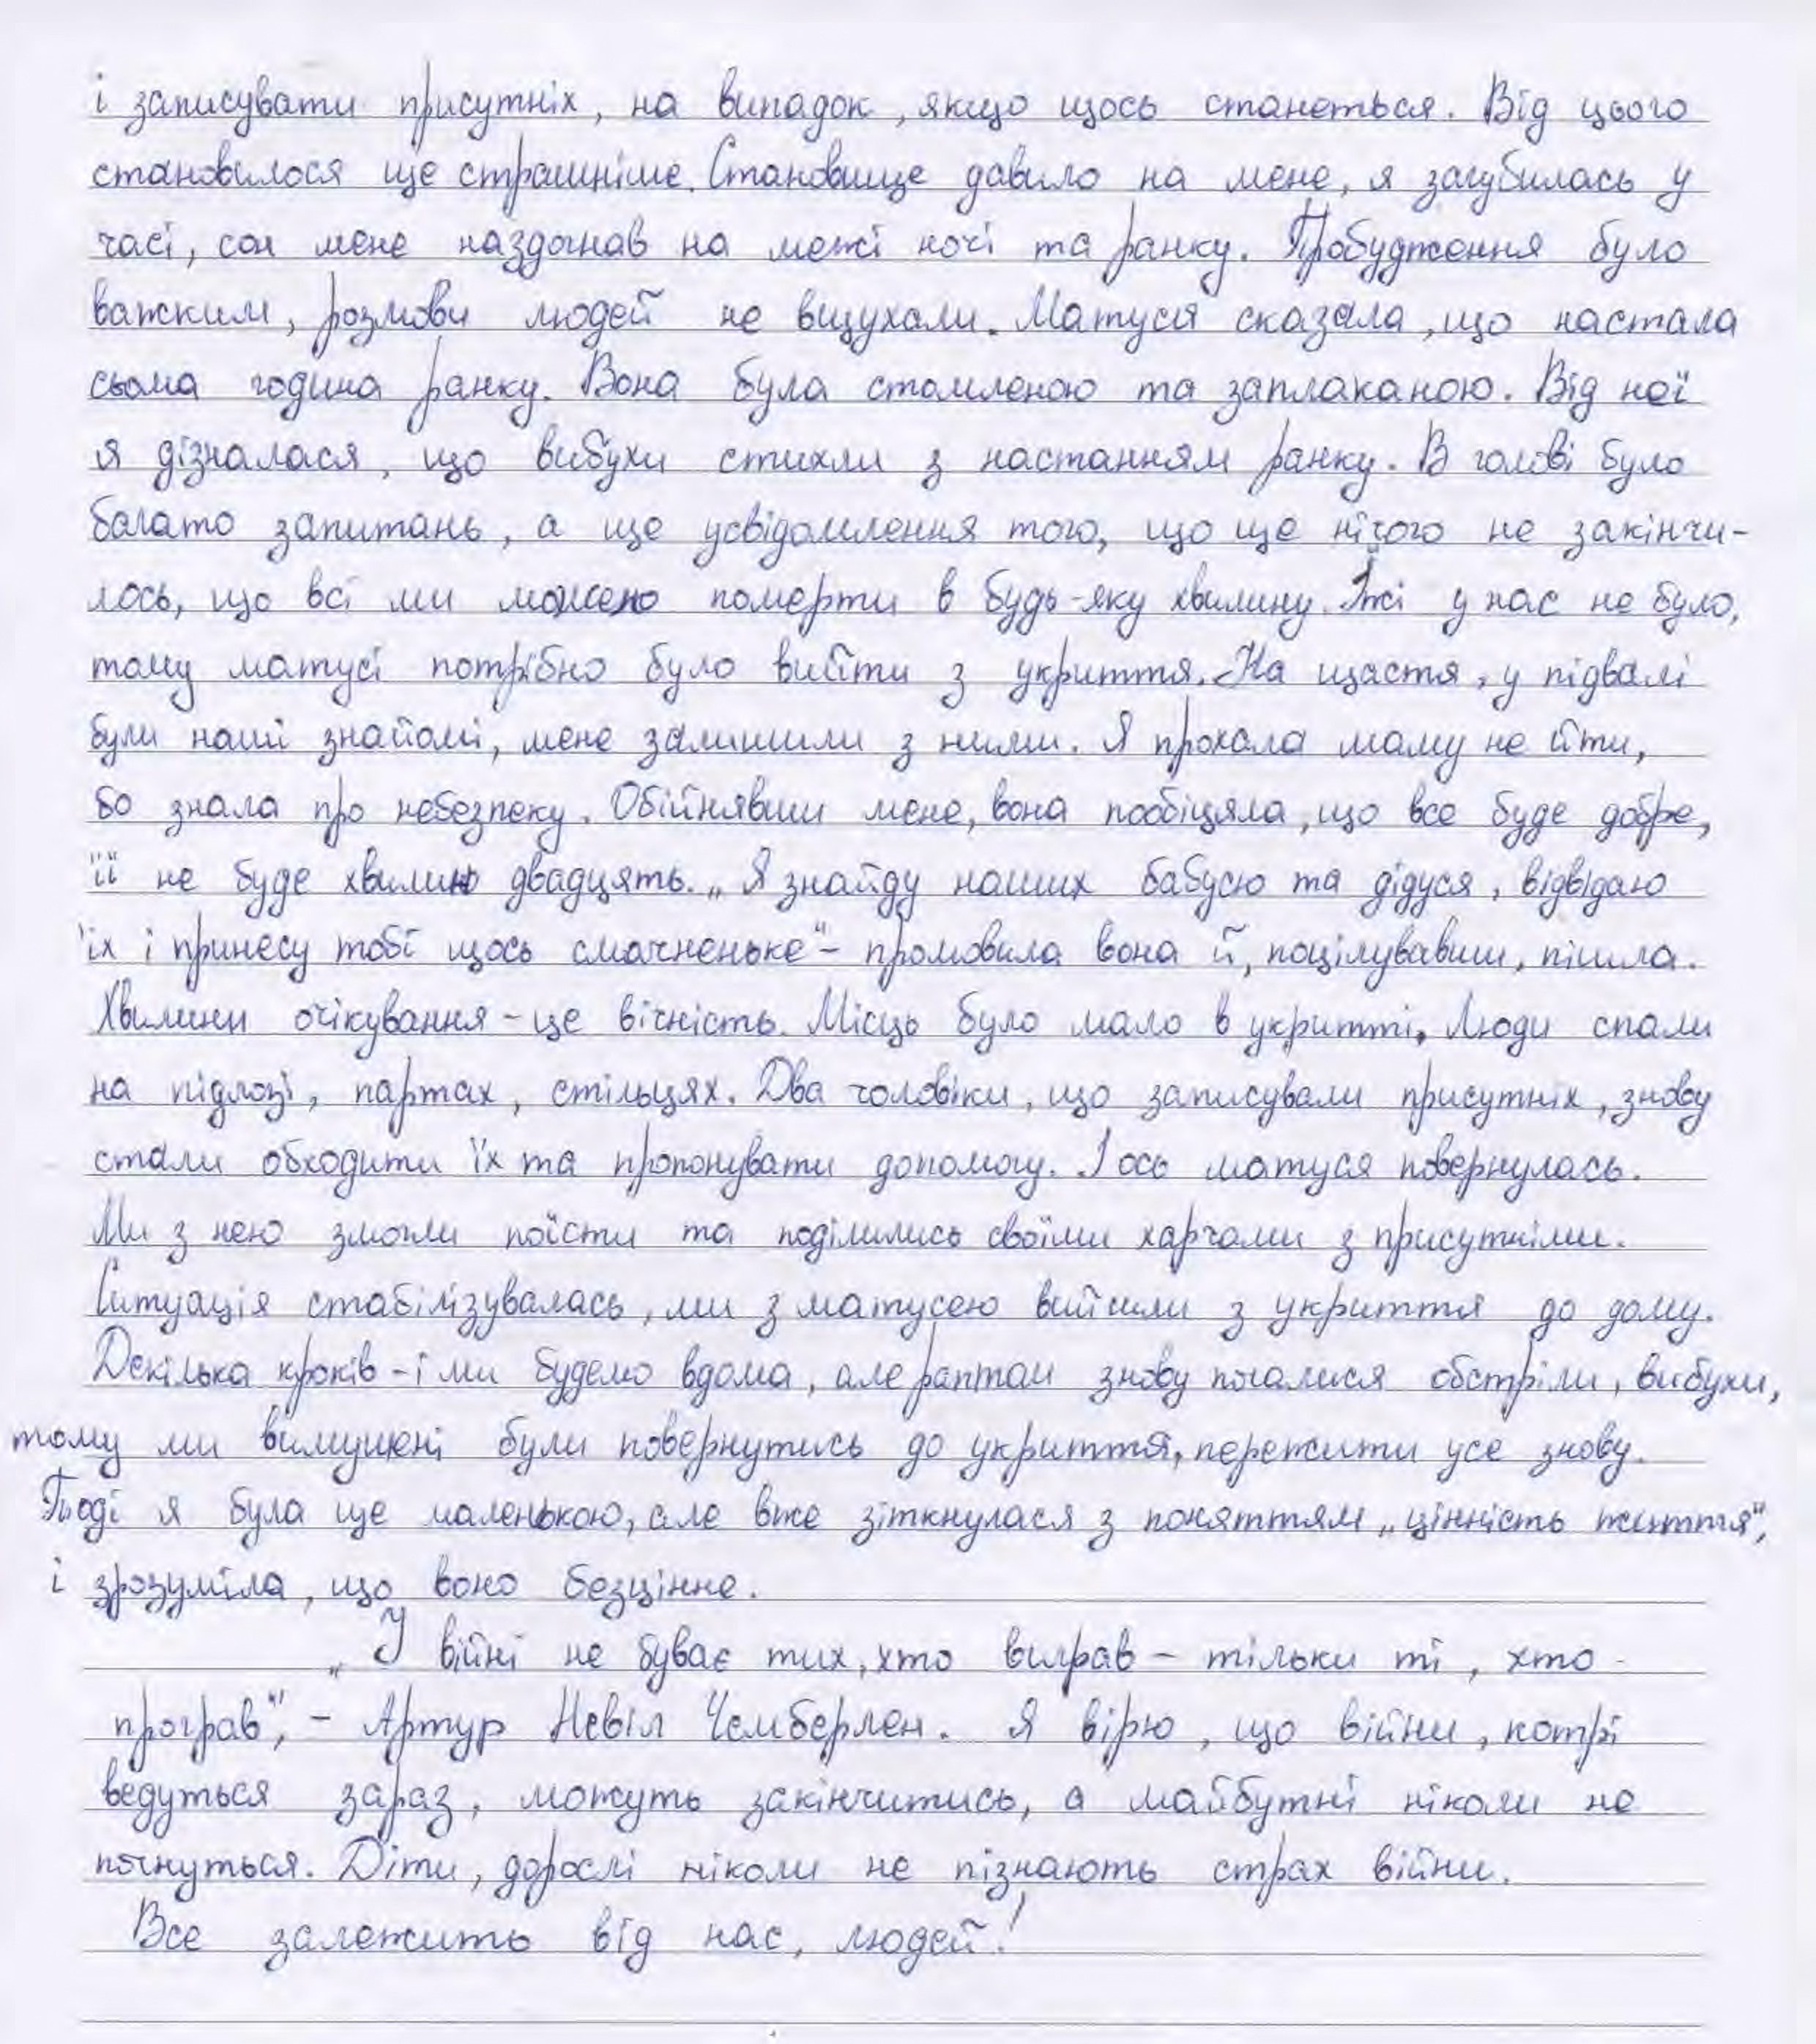 і записувати присутніх, на випадок, якщо щось станеться. Від цього
становилося ще страшніше. Становище давило на мене, я загубилась у
часі, сон мене наздогнав на межі ночі та ранку. Пробудження було
важким, розмови людей не вщухали. Матуся сказала, що настала
сьома година ранку. Вона була стомленою та заплаканою. Від неї
я дізналася, що вибухи стихли з настанням ранку. В голові було
багато запитань, а ще усвідомлення того, що ще нічого не закінчи-
лось, що всі ми можемо померти в будь-яку хвилину. Їжі у нас не було,
тому матусі потрібно було вийти з укриття. На щастя, у підвалі
були наші знайомі, мене залишили з ними. Я прохала маму не йти,
бо знала про небезпеку. Обійнявши мене, вона пообіцяла, що все буде добре,
її не буде хвилин двадцять. „Я знайду наших бабусю та дідуся, відвідаю
їх і принесу тобі щось смачненьке" – промовила вона й, поцілувавши, пішла.
Хвилини очікування – це вічність. Місць було мало в укритті. Люди спали
на підлозі, партах, стільцях. Два чоловіки, що записували присутніх, знову
стали обходити їх та пропонувати допомогу. І ось матуся повернулась.
Ми з нею змогли поїсти та поділились своїми харчами з присутніми.
Ситуація стабілізувалась, ми з матусею вийшли з укриття до дому.
Декілька кроків – і ми будемо вдома, але раптом знову почалися обстріли, вибухи,
тому ми вимушені були повернутись до укриття, пережити усе знову.
Тоді я була ще маленькою, але вже зіткнулася з поняттям „цінність життя",
і зрозуміла, що воно безцінне.
„У війні не буває тих, хто виграв – тільки ті, хто
програв", – Артур Невіл Чемберлен. Я вірю, що війни, котрі
ведуться зараз, можуть закінчитись, а майбутні ніколи не
почнуться. Діти, дорослі ніколи не пізнають страх війни.
Все залежить від нас, людей!